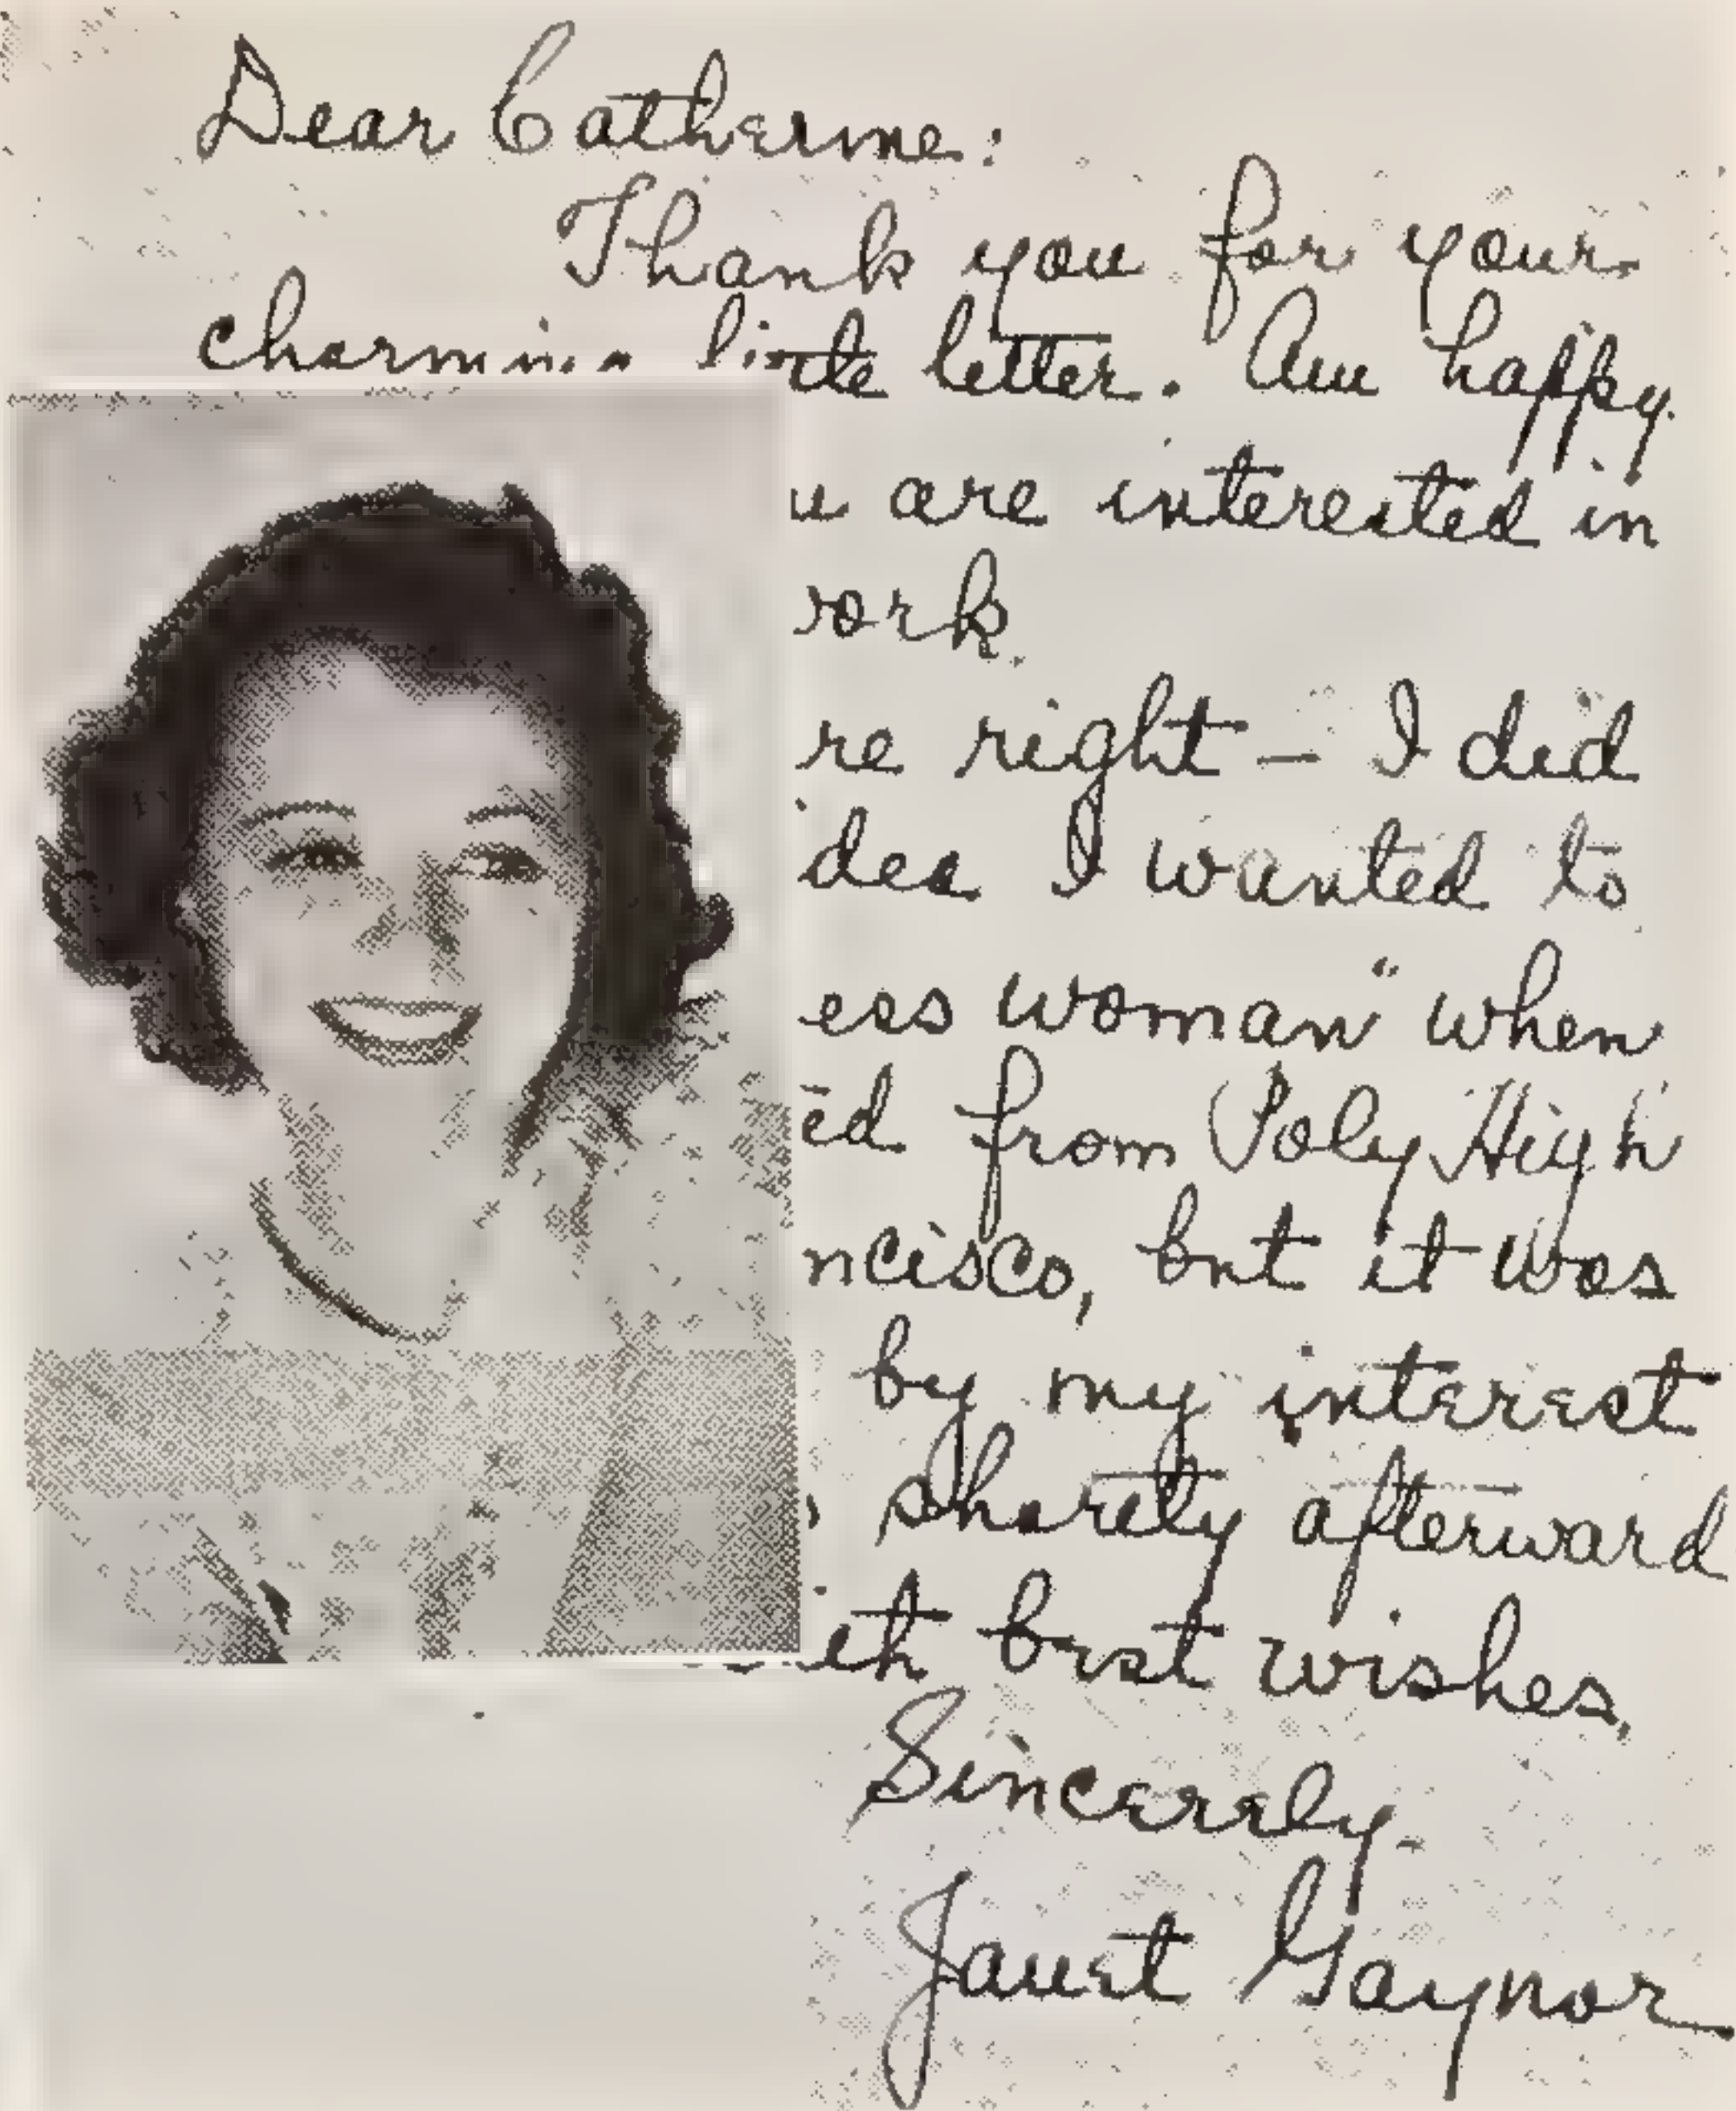 Dear Catherine:
Thank you for your
charming little letter. Am happy
are interested in
re right — I did
I wanted to
ess woman" when
ed from Poly High
ncisco, but it was
by my interest
shortly afterward
best wishes,
Sincerely.
Janet Gaynor